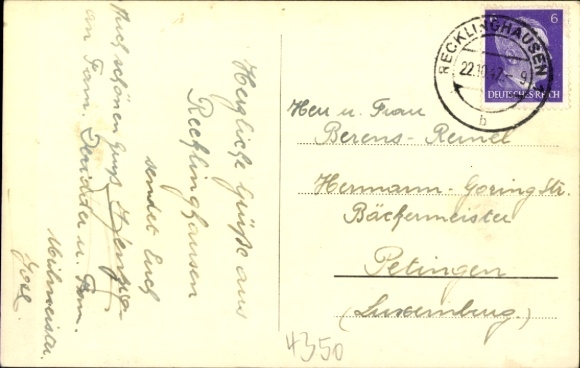 Herzliche Grüße aus
Recklinghausen
sendet Euch
Auch schönen Gruß
an Fam. u. Fam.
Mühmeister.
RECKLINGHAUSEN
22.10.42. 9
b
6
DEUTSCHES REICH
Herr u. Frau
Berens-Reinel
Hermann-Göring Str.
Bäckermeister
Petingen
(Luxemburg)
4350